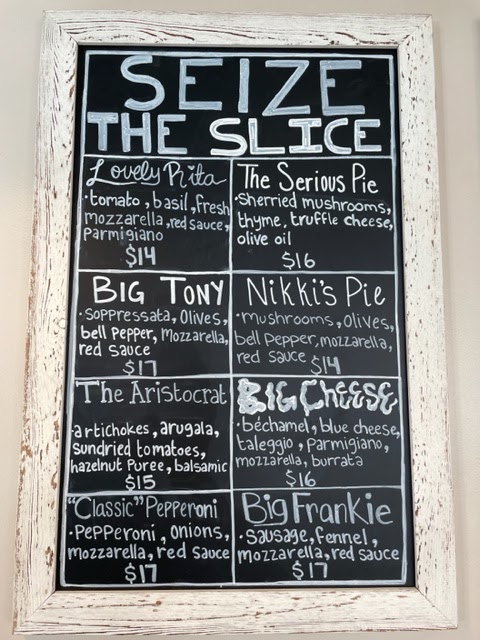 SEIZE
THE SLICE
Lovely Rita
·tomato, basil, fresh
mozzarella, red sauce,
parmigiano
$14
The Serious Pie
·Sherried mushrooms,
thyme, truffle cheese,
olive oil
$16
BIG TONY
·soppressata, olives,
bell pepper, mozzarella,
red sauce
$17
Nikki's Pie
·mushrooms, olives,
bell pepper, mozzarella,
red sauce $14
The Aristocrat
·artichokes, arugala,
sundried tomatoes,
hazelnut puree, balsamic
$15
BIG CHEESE
·béchamel, blue cheese,
taleggio, parmigiano,
mozzarella, burrata
$16
"Classic" Pepperoni
·pepperoni, onions,
mozzarella, red sauce
$17
Big Frankie
·sausage, fennel,
mozzarella, red sauce
$17